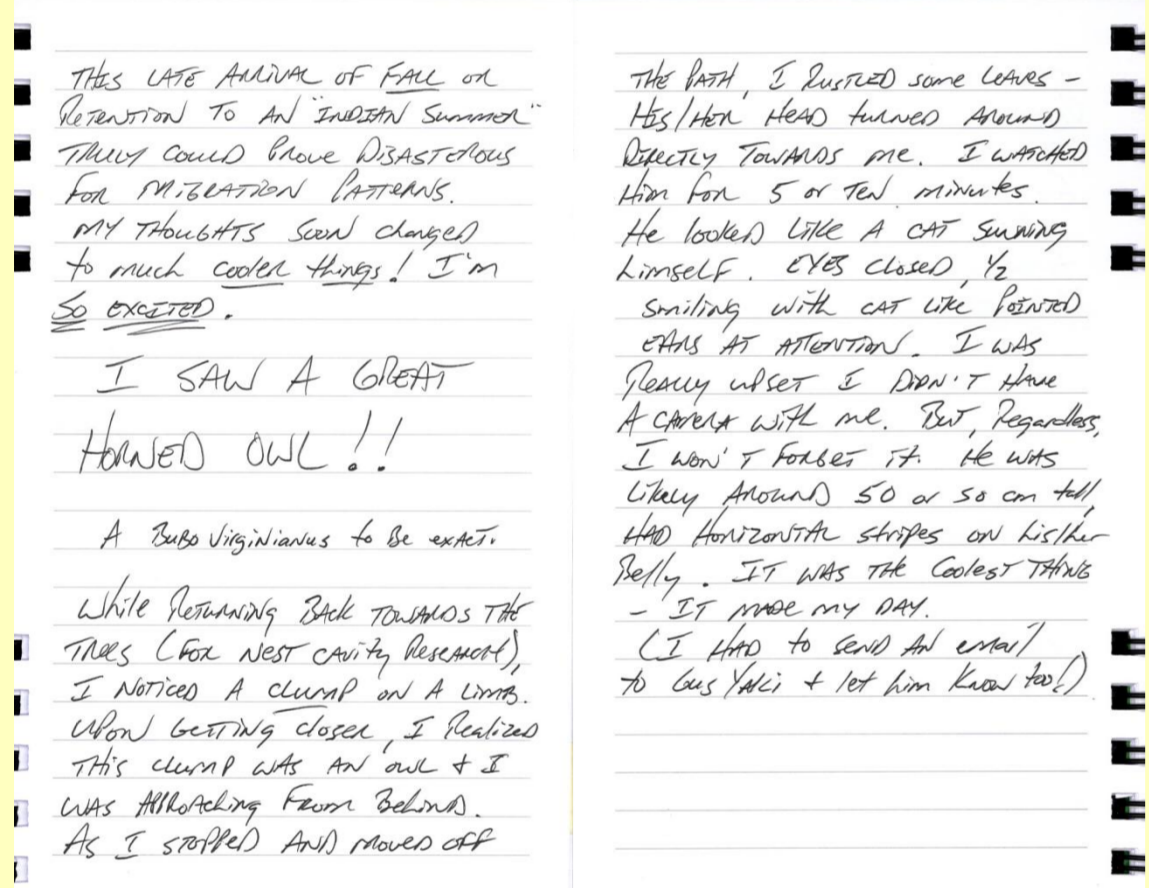 THIS LATE ARRIVAL OF FALL OR
RETENTION TO AN "INDIAN Summer"
TRULY COULD PROVE DISASTEROUS
FOR MIGRATION PATTERNS.
MY THOUGHTS SOON changED
to much cooler things! I'm
SO EXCITED.
I SAW A GREAT
HORNED OWL!!
A Bubo Virginianus to Be exact.
While Returning BACK TOWARDS THE
TREES (FOR NEST CAVITY RESEARCH),
I NOTICED A CLUMP ON A LIMB.
UPON GETTING closer, I Realized
THIS clump WAS AN OWL + I
WAS APPROACHING FROM BEHIND.
AS I STOPPED AND MOVED OFF
THE PATH, I RUSTLED some LEAVES -
HIS/HER HEAD turned AROUND
DIRECTLY TOWARDS me. I WATCHED
HIM FOR 5 or TEN minutes.
He looked LIKE A CAT SUNNING
himself. EYES CLOSED, 1/2
smiling with CAT LIKE POINTED
EARS AT ATTENTION. I WAS
REALLY UPSET I DIDN'T HAVE
A CAMERA WITH me. BUT, Regardless,
I WON'T FORGET IT. He WAS
Likely AROUND 50 or so cm tall,
HAD HORIZONTAL stripes ON his/her
Belly. IT WAS THE COOLEST THING
- IT MADE MY DAY.
(I HAD to SEND AN email
to Gus Yaki + let him Know too!)